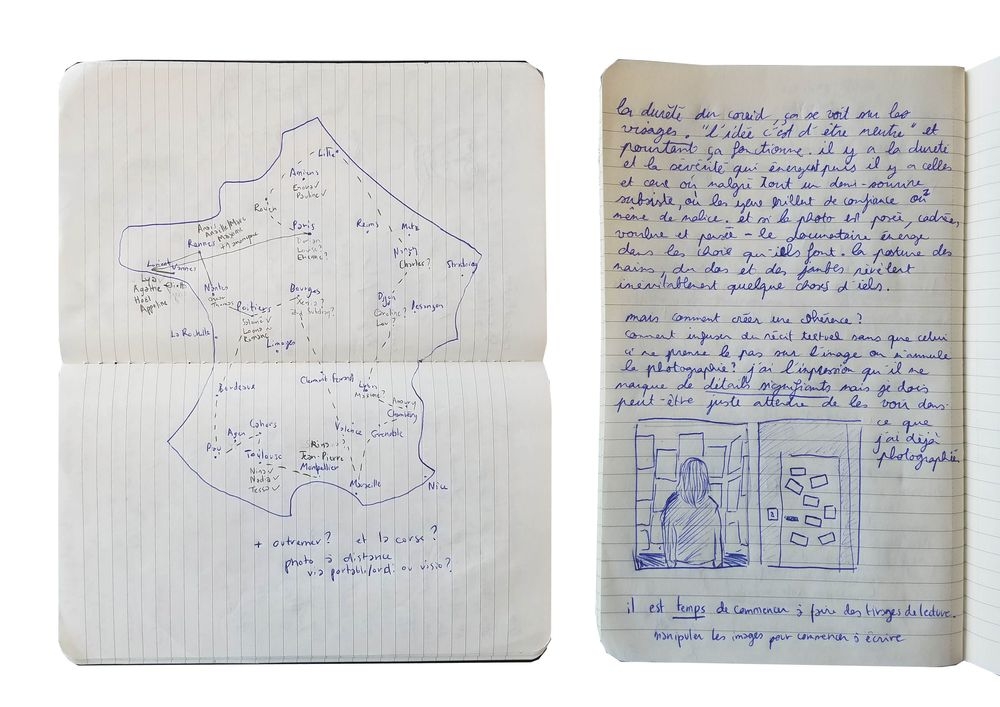 Lille
Amiens
Enora ✓
Pauline ✓
Rouen
Paris
Dorian
Louise?
Etienne?
Reims
Metz
Nancy
Charles?
Strasbourg
Anaïs
Maxime
Rennes
Lorient
Vannes
Lyv
Agathe
Hoël
Appoline
Nantes
Thomas
Poitiers
Romane
Bourges
Dijon
Caroline?
Lou?
Besançon
La Rochelle
Limoges
Clermont Ferrand
Lyon
Maxime?
Amaury
Chambéry
Bordeaux
Valence
Grenoble
Cahors
Agen
Pau
Toulouse
Nina ✓
Nadia ✓
Tessa ✓
Rina
Jean-Pierre
Montpellier
Marseille
Nice
+ outremer? et la corse?
photo à distance
via portable/ordi ou visio?
la dureté du covid, ça se voit sur les
visages. "l'idée c'est d'être neutre" et
pourtant ça fonctionne. il y a la dureté
et la sévérité qui émergent puis il y a celles
et ceux où malgré tout un demi-sourire
subsiste, où les yeux brillent de confiance ou
même de malice. et si la photo est posée, cadrée,
voulue et pensée - le documentaire émerge
dans les choix qu'iels font. la posture des
mains, du dos et des jambes révèlent
inévitablement quelque chose d'iels.
mais comment créer une cohérence?
comment infuser du récit textuel sans que celui
ci ne prenne le pas sur l'image ou n'annule
la photographie? j'ai l'impression qu'il me
manque de détails signifiants mais je dois
peut-être juste attendre de les voir dans
ce que
j'ai déjà
photographié
il est temps de commencer à faire des tirages de lecture.
manipuler les images pour commencer à écrire